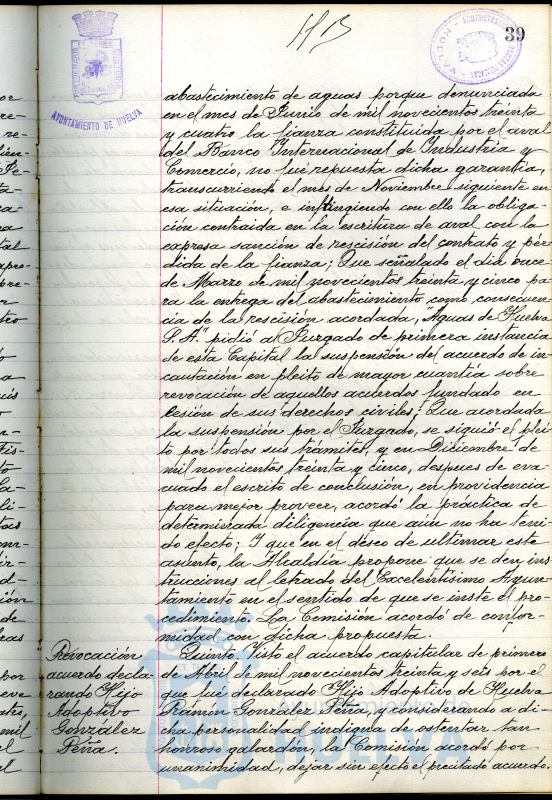 39
AYUNTAMIENTO DE HUELVA
abastecimiento de aguas porque denunciada
en el mes de Junio de mil novecientos treinta
y cuatro la fianza constituida por el aval
del Banco Internacional de Industria y
Comercio, no fué repuesta dicha garantía,
transcurriendo el mes de Noviembre siguiente en
esa situación, e infringiendo con ello la obliga-
ción contraida en la escritura de aval con la
expresa sanción de rescisión del contrato y pér-
dida de la fianza; Que señalado el dia once
de Marzo de mil novecientos treinta y cinco pa-
ra la entrega del abastecimiento como consecuen-
cia de la rescisión acordada, "Aguas de Huelva
S. A." pidió al Juzgado de primera instancia
de esta Capital la suspensión del acuerdo de in-
cautación en pleito de mayor cuantía sobre
revocación de aquellos acuerdos fundado en
lesión de sus derechos civiles; Que acordada
la suspensión por el Juzgado, se siguió el plei-
to por todos sus trámites, y en Diciembre de
mil novecientos treinta y cinco, despues de eva-
cuado el escrito de conclusión, en providencia
para mejor proveer, acordó la práctica de
determinada diligencia que aún no ha teni-
do efecto; Y que en el deseo de ultimar este
asunto, la Alcaldía propone que se den ins-
trucciones al letrado del Excelentísimo Ayun-
tamiento en el sentido de que se inste el pro-
cedimiento. La Comisión acordó de confor-
midad con dicha propuesta.
Revocación
acuerdo decla-
rando Hijo
Adoptivo
González
Peña.
Quinto. Visto el acuerdo capitular de primero
de Abril de mil novecientos treinta y seis por el
que fué declarado Hijo Adoptivo de Huelva
Ramón González Peña, y considerando a di-
cha personalidad indigna de ostentar tan
honroso galardón, la Comisión acordó por
unanimidad, dejar sin efecto el precitado acuerdo.